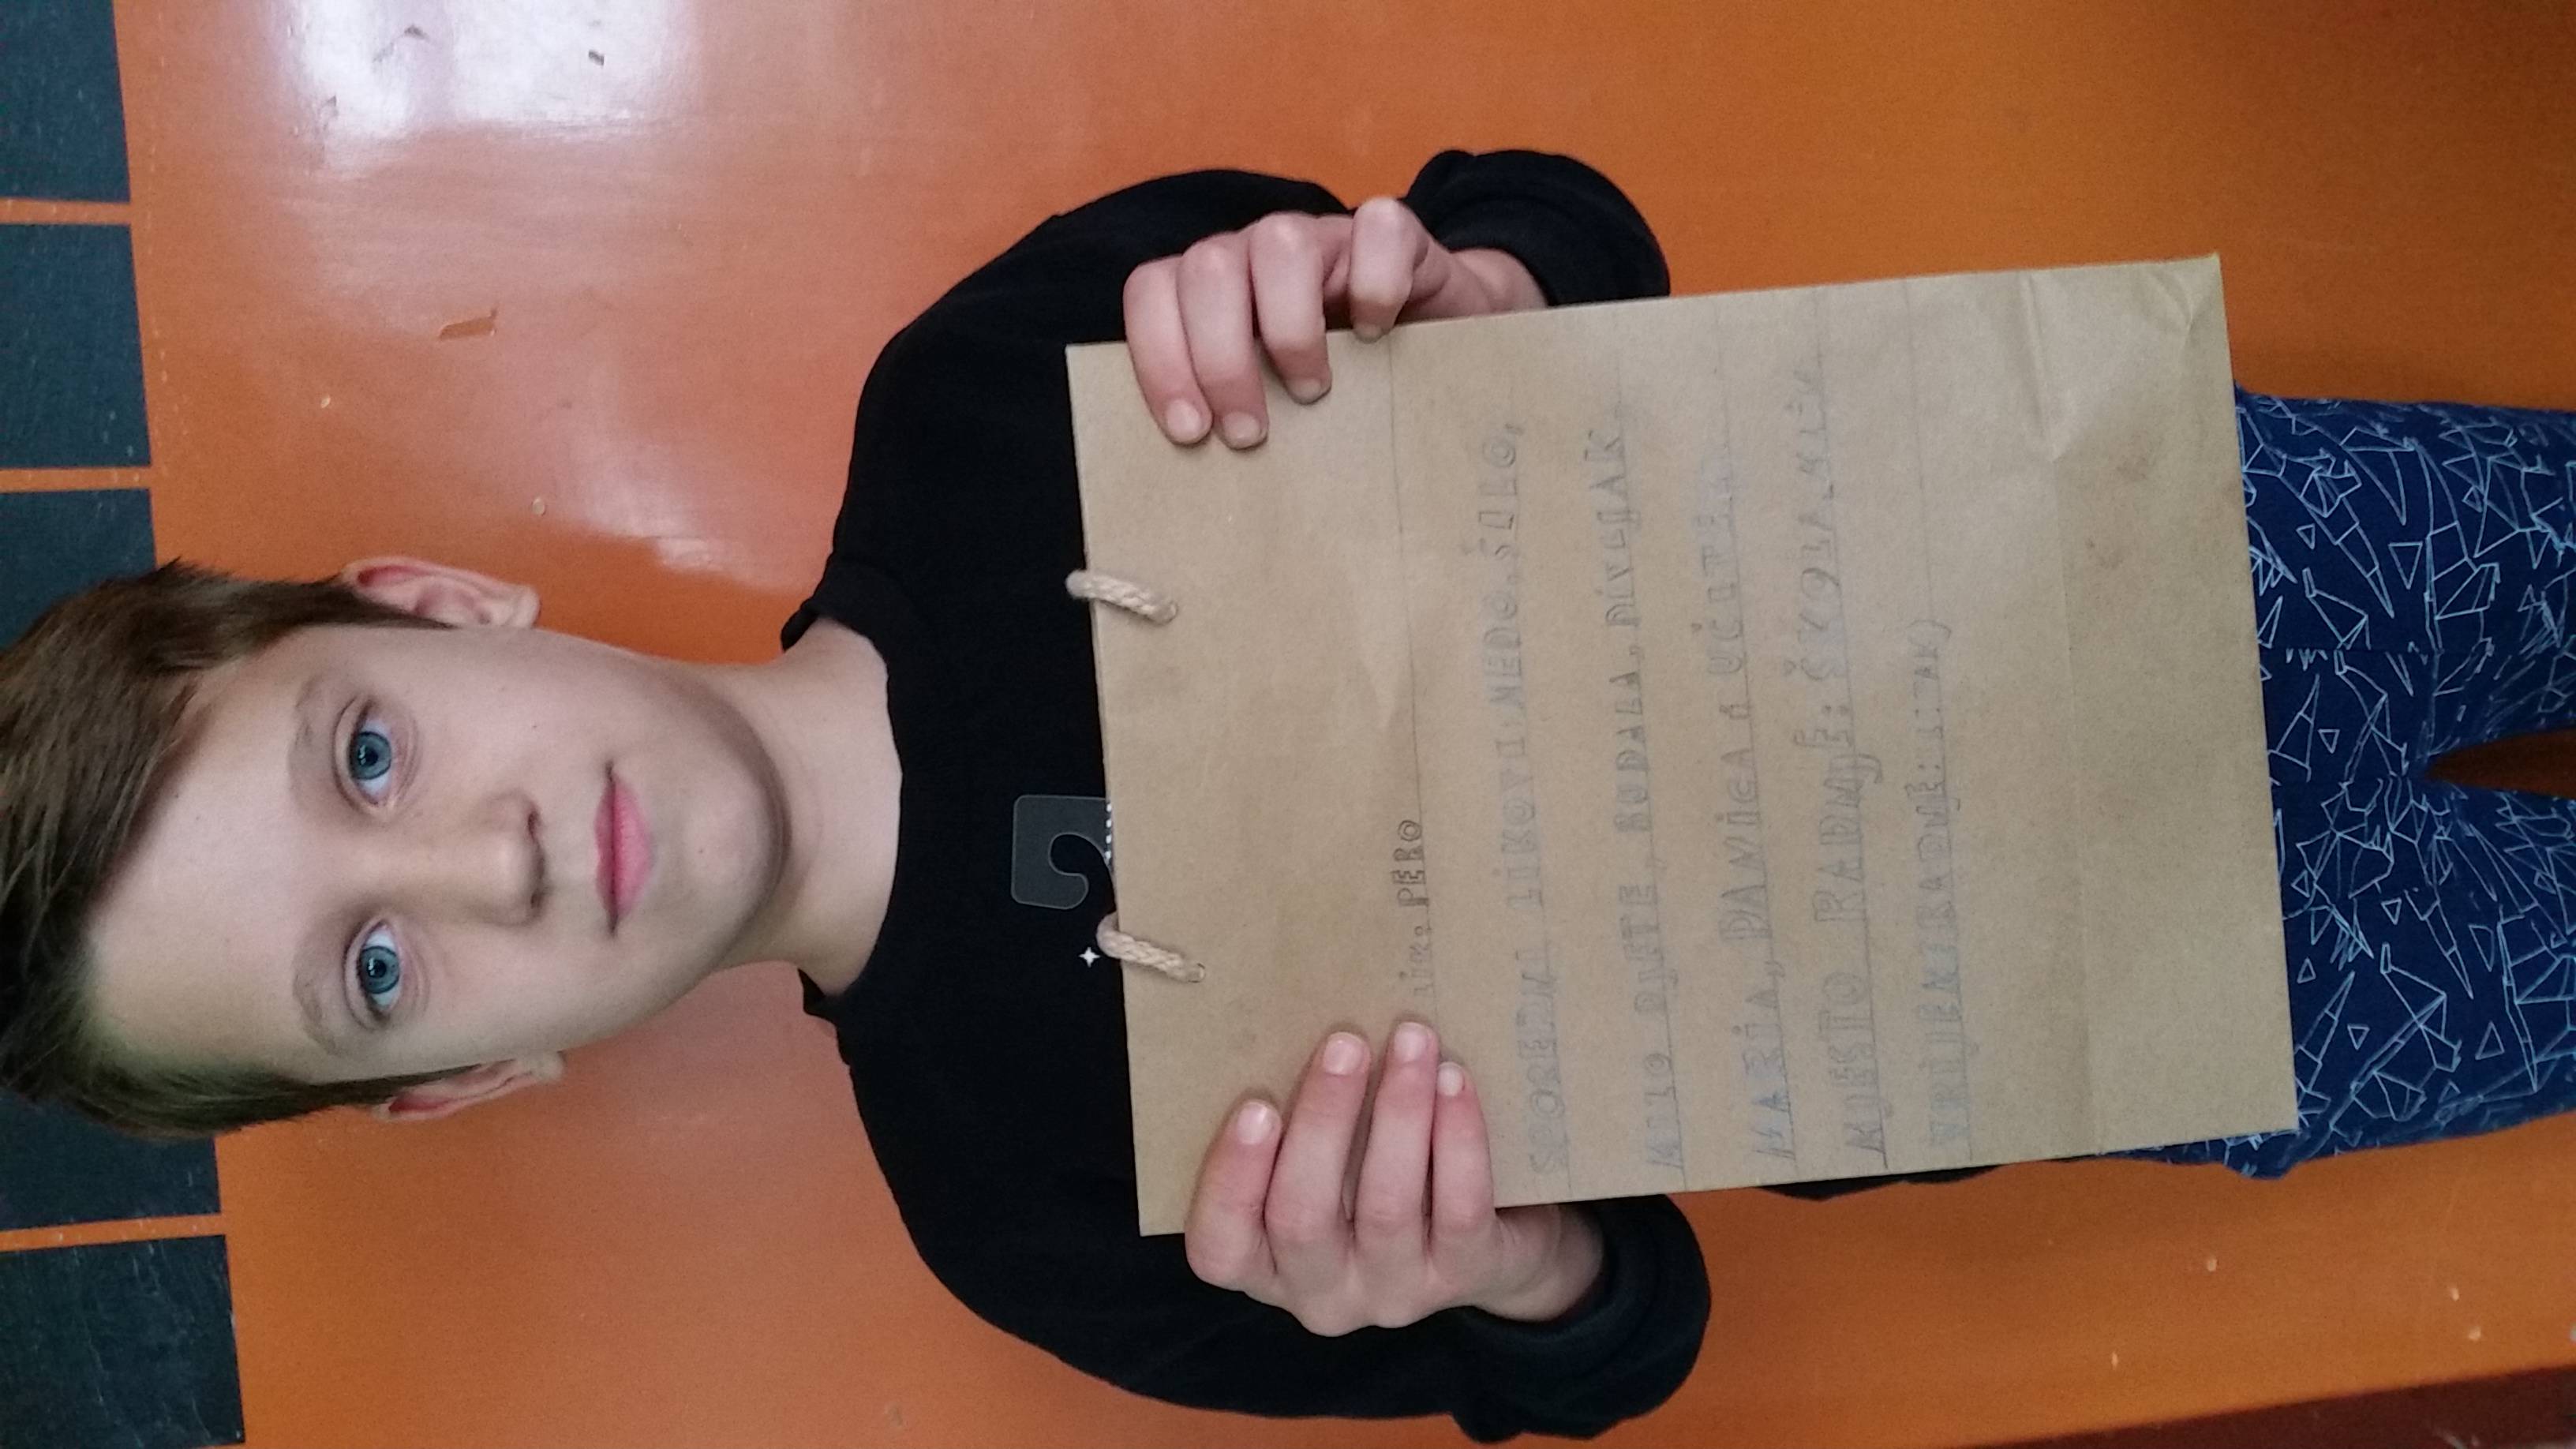 LIK: PERO
SPOREDNI LIKOVI: MEDO, ŠILO,
MILO DIJETE, BUDALA, DIVLJAK
MARIA, DANICA I UČITELJ
MJESTO RADNJE: ŠKOLA
VRIJEME RADNJE: